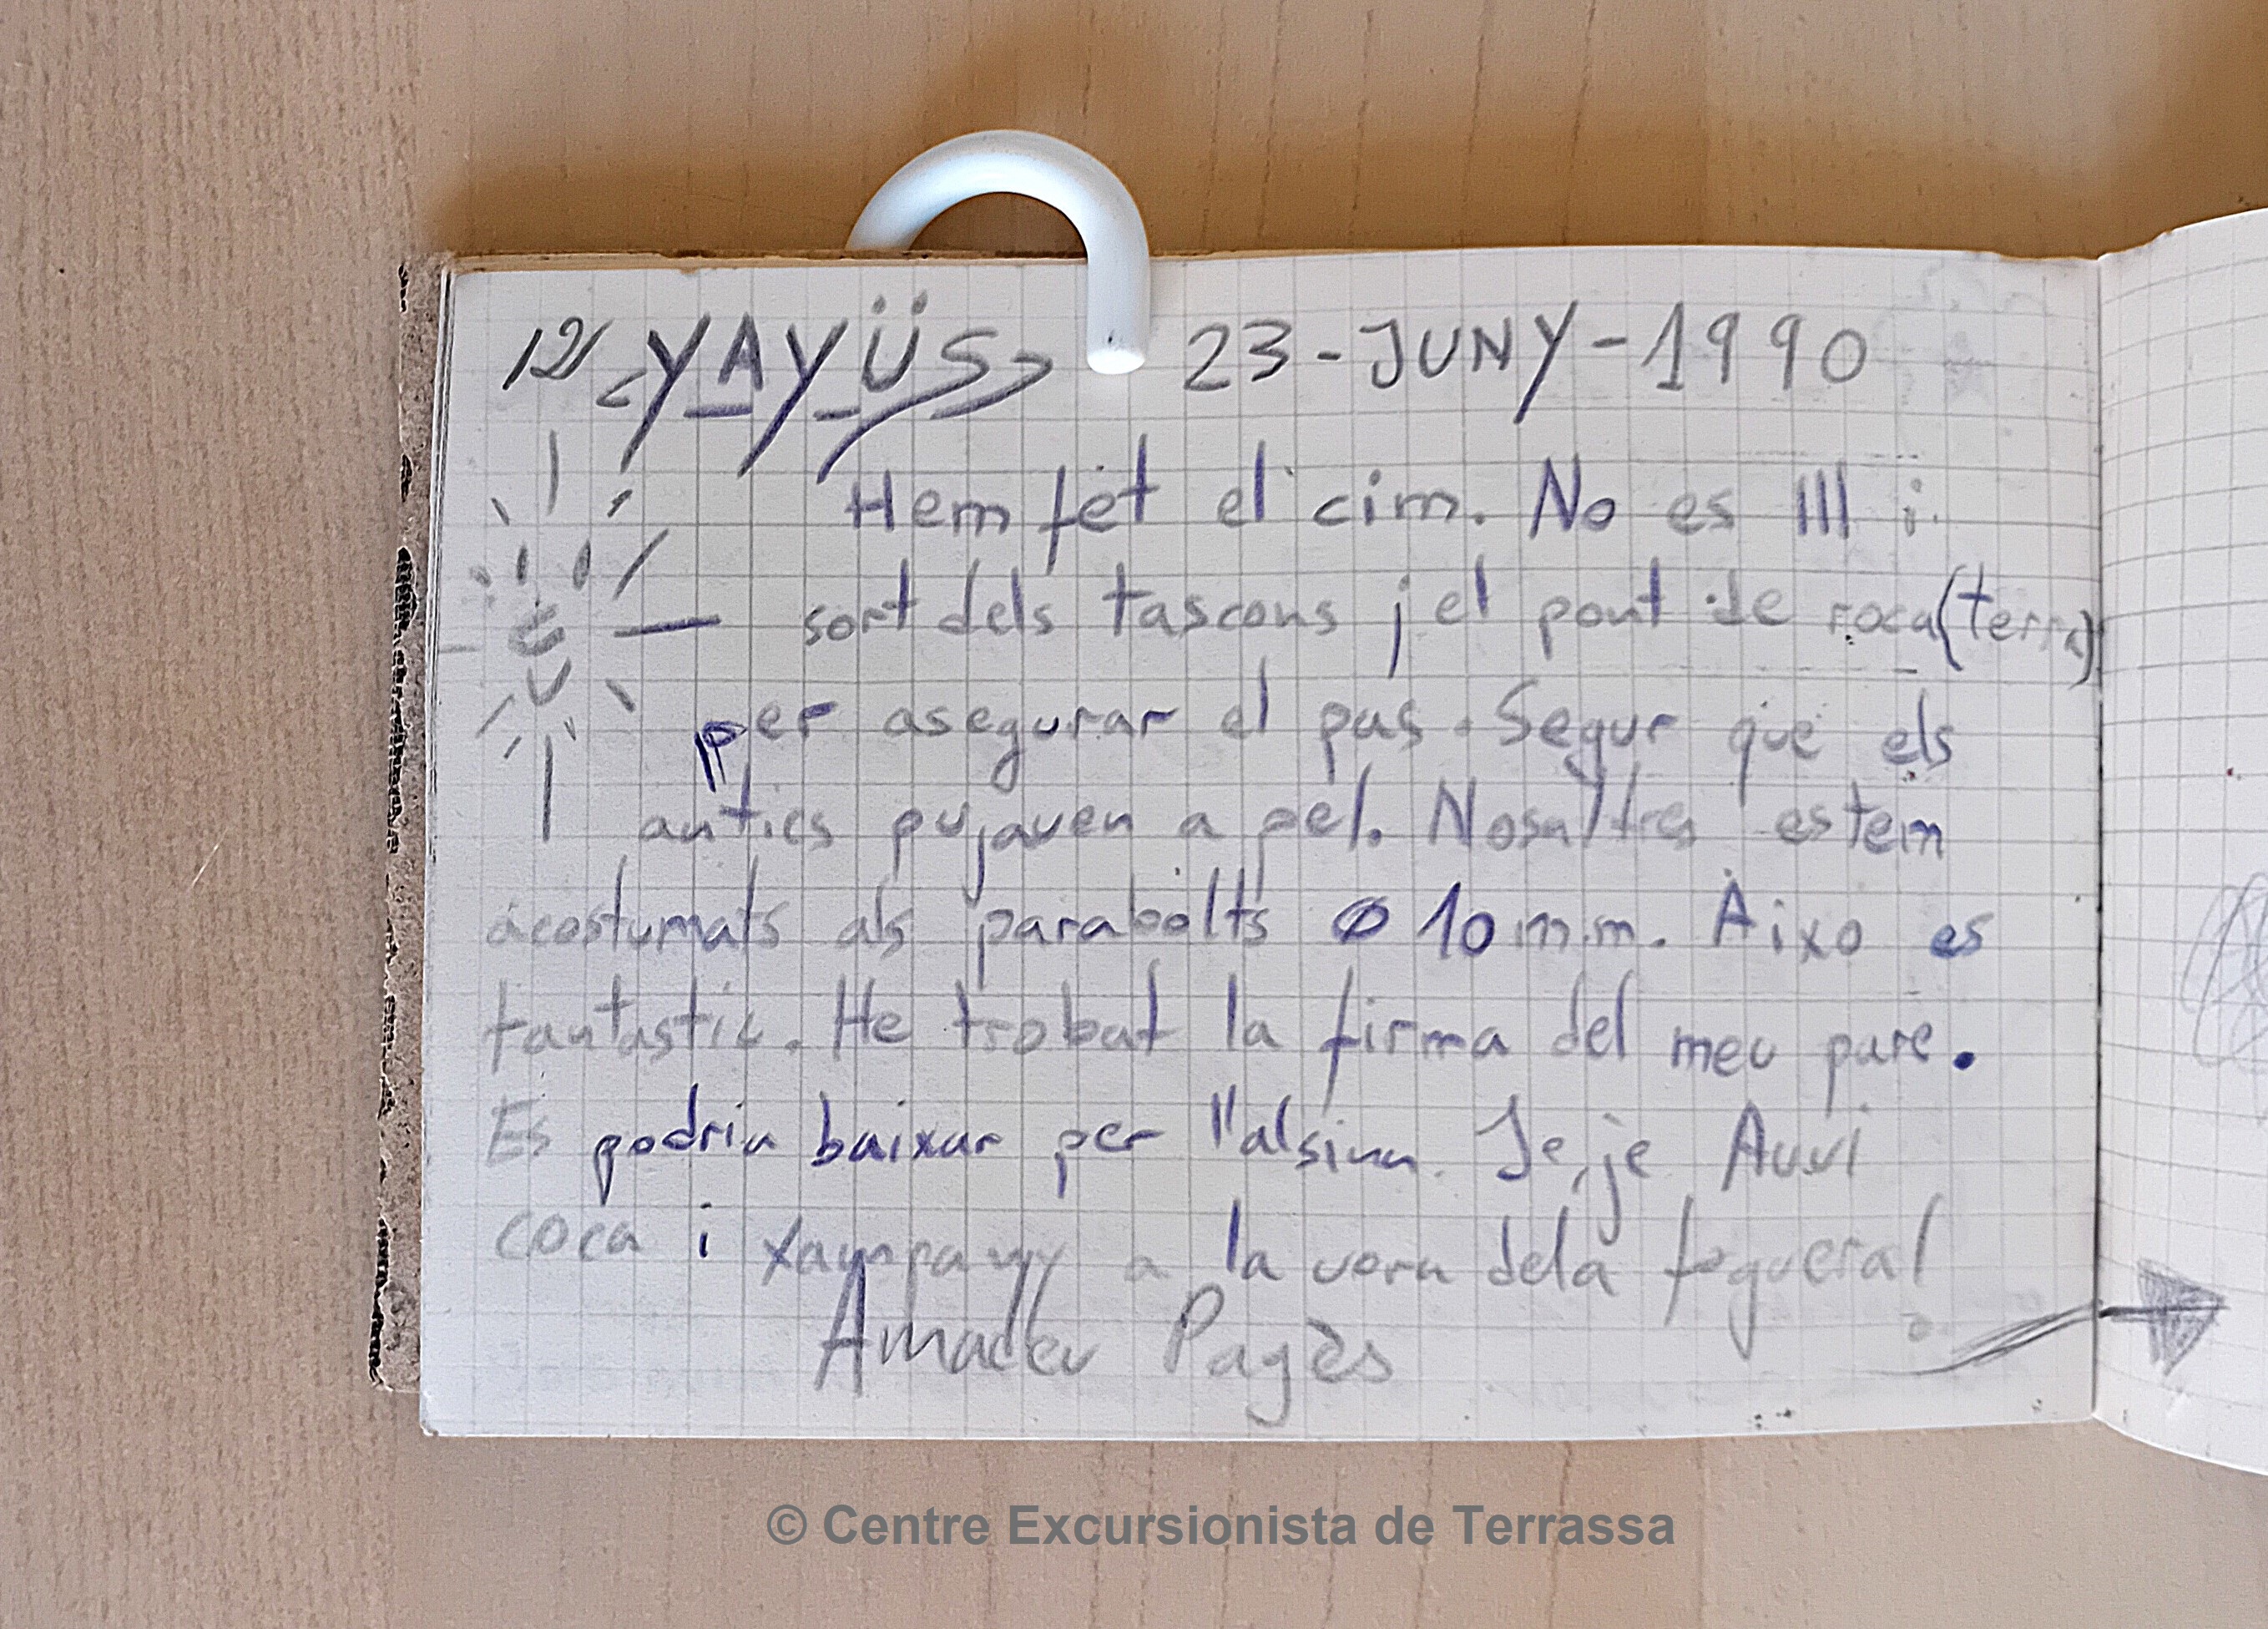 12 <YAYÜS> 23-JUNY-1990
Hem fet el cim. No es III i
sort dels tascons i el pont de roca (terra)
per asegurar el pas. Segur que els
antics pujaven a pel. Nosaltres estem
acostumats als parabolts Ø 10 m.m. Aixo es
fantastic. He trobat la firma del meu pare.
Es podria baixar per l'alsina. Je, je Avui
coca i xampany a la vora dela foguera!
Amadeu Pagès
© Centre Excursionista de Terrassa